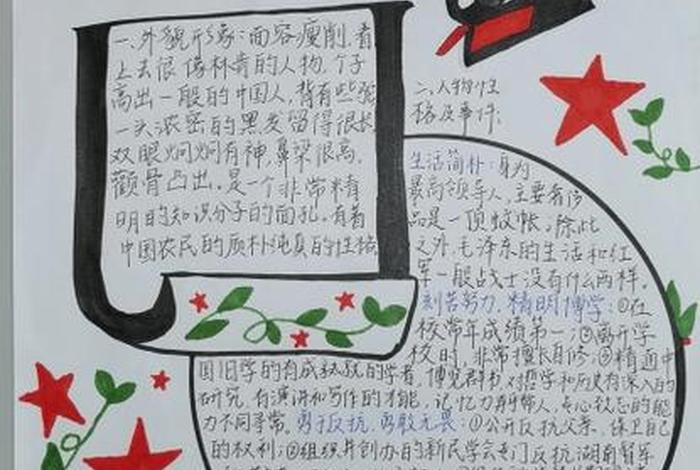 一、外貌形象：面容瘦削，看
上去很像林肯的人物，个子
高出一般的中国人，背有些驼
一头浓密的黑发留得很长
双眼炯炯有神，鼻梁很高，
颧骨凸出。是一个非常精
明的知识分子的面孔。有着
中国农民的质朴纯真的性格
二、人物性
格及事件：
生活简朴：身为
最高领导人，主要奢侈
品是一顶蚊帐，除此
之外，毛泽东的生活和红
军一般战士没有什么两样。
刻苦努力，精明博学：①在
校常年成绩第一；②离开学
校时，非常擅长自修；③精通中
国旧学的有成就的学者，博览群书，对哲学和历史有深入的
研究，有演讲和写作的才能，记忆力异于常人，专心致志的能
力不同寻常。勇于反抗，勇敢无畏：①公开反抗父亲，保卫自己
的权利；②组织并创办的新民学会专门反抗湖南督军